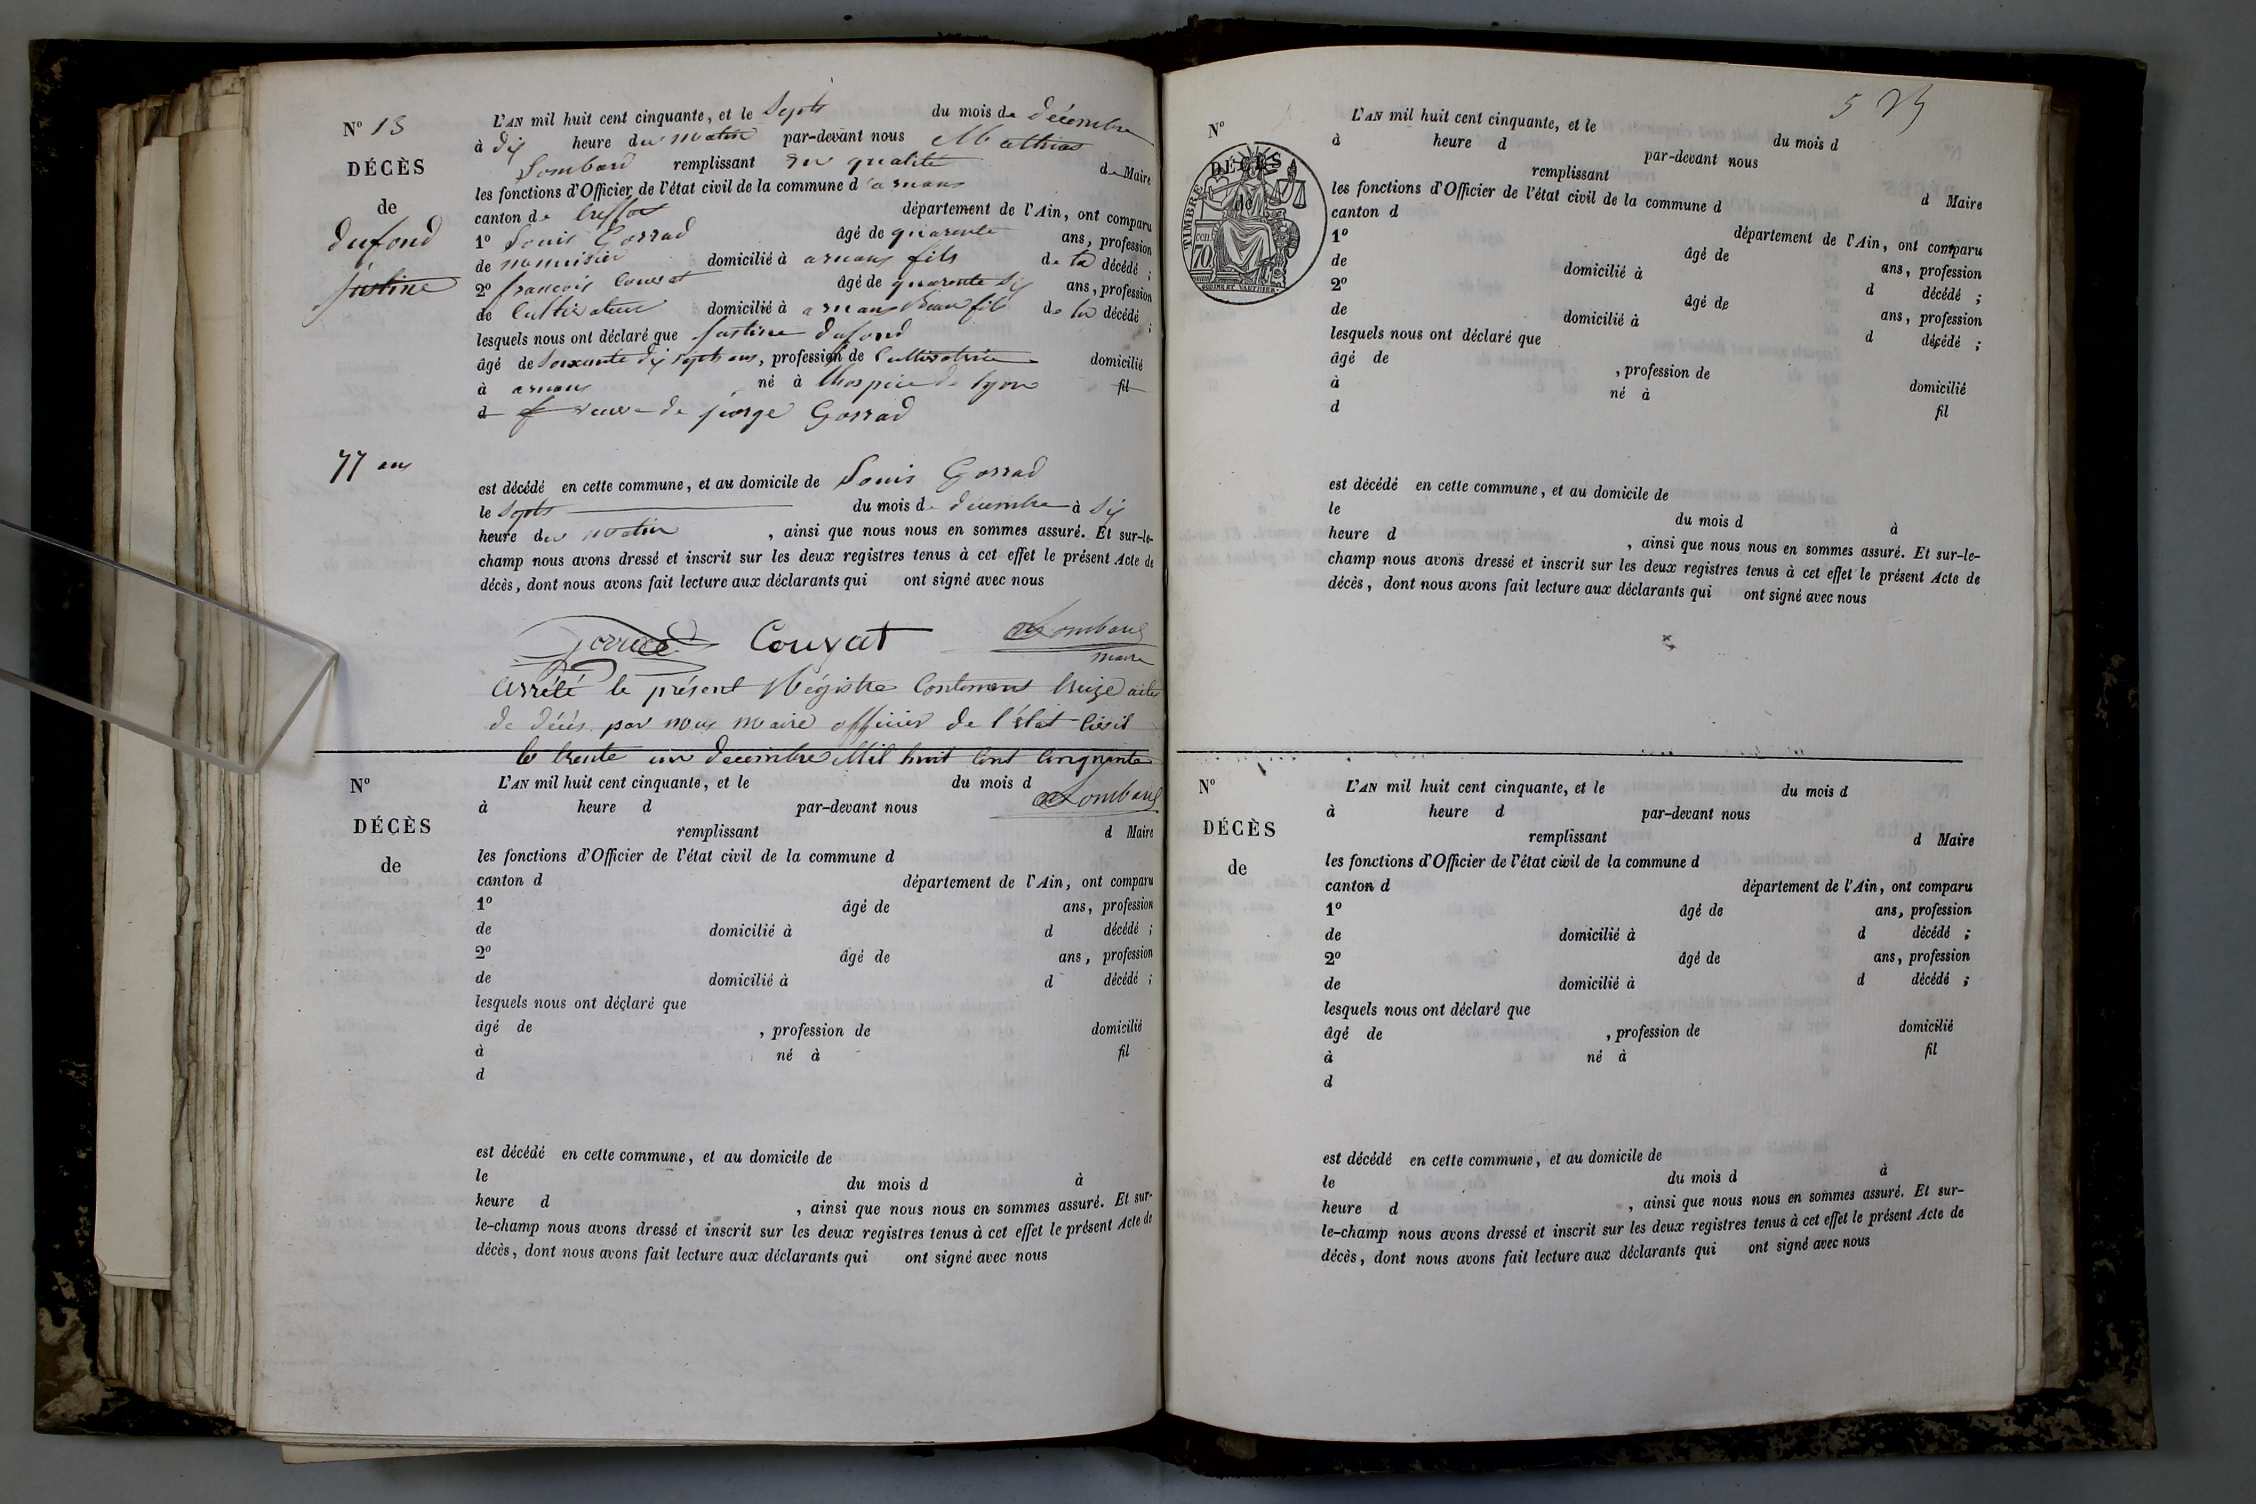 N° 13
DÉCÈS
de
dufond
justine
77 ans
L'AN mil huit cent cinquante, et le Sept du mois de décembre
à dix heure du matin par-devant nous Mathias
Lombard remplissant en qualité de Maire
les fonctions d'Officier de l'état civil de la commune d'arnans
canton de treffort département de l'Ain, ont comparu
1° Louis Gorrad âgé de quarante ans, profession
de menuisier domicilié à arnans fils de la décédé ;
2° françois Couvat âgé de quarante six ans, profession
de Cultivateur domicilié à arnans Beau fils de la décédé ;
lesquels nous ont déclaré que justine dufond
âgé de Soixante dix sept ans, profession de Cultivatrice domicilié
à arnans né à l'hospice de lyon fil
d veuve de jeorge Gorrad
est décédé en cette commune, et au domicile de Louis Gorrad
le Sept du mois de décembre à six
heure du matin , ainsi que nous nous en sommes assuré. Et sur-le-
champ nous avons dressé et inscrit sur les deux registres tenus à cet effet le présent Acte de
décès, dont nous avons fait lecture aux déclarants qui ont signé avec nous
Couvat Lombard
maire
Arrêté le présent Régistre Contenant treize actes
de décès par nous maire officier de l'état Civil
le trente un decembre Mil huit Cent Cinquante
Lombard
N°
DÉCÈS
de
L'AN mil huit cent cinquante, et le du mois d
à heure d par-devant nous
remplissant d Maire
les fonctions d'Officier de l'état civil de la commune d
canton d département de l'Ain, ont comparu
1° âgé de ans, profession
de domicilié à d décédé ;
2° âgé de ans, profession
de domicilié à d décédé ;
lesquels nous ont déclaré que
âgé de , profession de domicilié
à né à fil
d
est décédé en cette commune, et au domicile de
le du mois d à
heure d , ainsi que nous nous en sommes assuré. Et sur-
le-champ nous avons dressé et inscrit sur les deux registres tenus à cet effet le présent Acte de
décès, dont nous avons fait lecture aux déclarants qui ont signé avec nous
N°
TIMBRE
DÉCÈS
de
cent.
70
L'AN mil huit cent cinquante, et le du mois d
à heure d par-devant nous
remplissant d Maire
les fonctions d'Officier de l'état civil de la commune d
canton d département de l'Ain, ont comparu
1° âgé de ans, profession
de domicilié à d décédé ;
2° âgé de ans, profession
de domicilié à d décédé ;
lesquels nous ont déclaré que
âgé de , profession de domicilié
à né à fil
d
est décédé en cette commune, et au domicile de
le du mois d à
heure d , ainsi que nous nous en sommes assuré. Et sur-le-
champ nous avons dressé et inscrit sur les deux registres tenus à cet effet le présent Acte de
décès, dont nous avons fait lecture aux déclarants qui ont signé avec nous
N°
DÉCÈS
de
L'AN mil huit cent cinquante, et le du mois d
à heure d par-devant nous
remplissant d Maire
les fonctions d'Officier de l'état civil de la commune d
canton d département de l'Ain, ont comparu
1° âgé de ans, profession
de domicilié à d décédé ;
2° âgé de ans, profession
de domicilié à d décédé ;
lesquels nous ont déclaré que
âgé de , profession de domicilié
à né à fil
d
est décédé en cette commune, et au domicile de
le du mois d à
heure d , ainsi que nous nous en sommes assuré. Et sur-
le-champ nous avons dressé et inscrit sur les deux registres tenus à cet effet le présent Acte de
décès, dont nous avons fait lecture aux déclarants qui ont signé avec nous